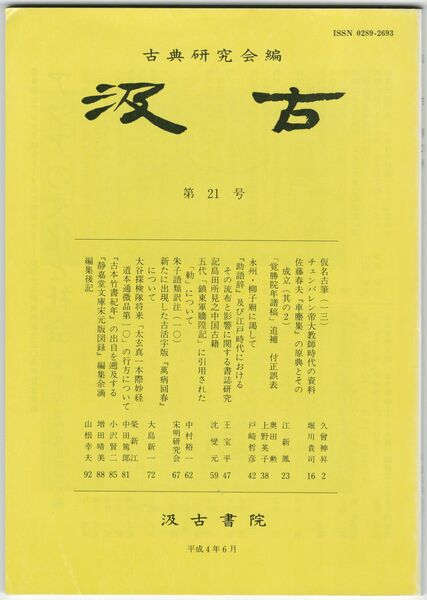 ISSN 0289-2693
古典研究会編
汲古
第21号
仮名古筆(一三) 久曾神昇 2
チェンバレン帝大教師時代の資料 堀川貴司 16
佐藤春夫『車塵集』の原典とその
成立(其の2) 江新鳳 23
「覚勝院年譜稿」追補 付正誤表 奥田勲 上野英子 38
永州、柳子廟に謁して 戸崎哲彦 42
『助語辞』及び江戸時代における
その流布と影響に関する書誌研究 王宝平 47
記島田所見之中国古籍 沈燮元 59
五代「鎮東軍牆隍記」に引用された
「勅」について 中村裕一 62
朱子語類訳注(一〇) 宋明研究会 67
新たに出現した古活字版『萬病回春』
について 大島新一 72
大谷探検隊将来「太玄真一本際妙経
道本通微品第一〇」の行方について 栄新江 中田篤郎 81
『古本竹書紀年』の出自を遡及する 小沢賢二 85
『静嘉堂文庫宋元版図録』編集余滴 増田晴美 88
編集後記 山根幸夫 92
汲古書院
平成4年6月